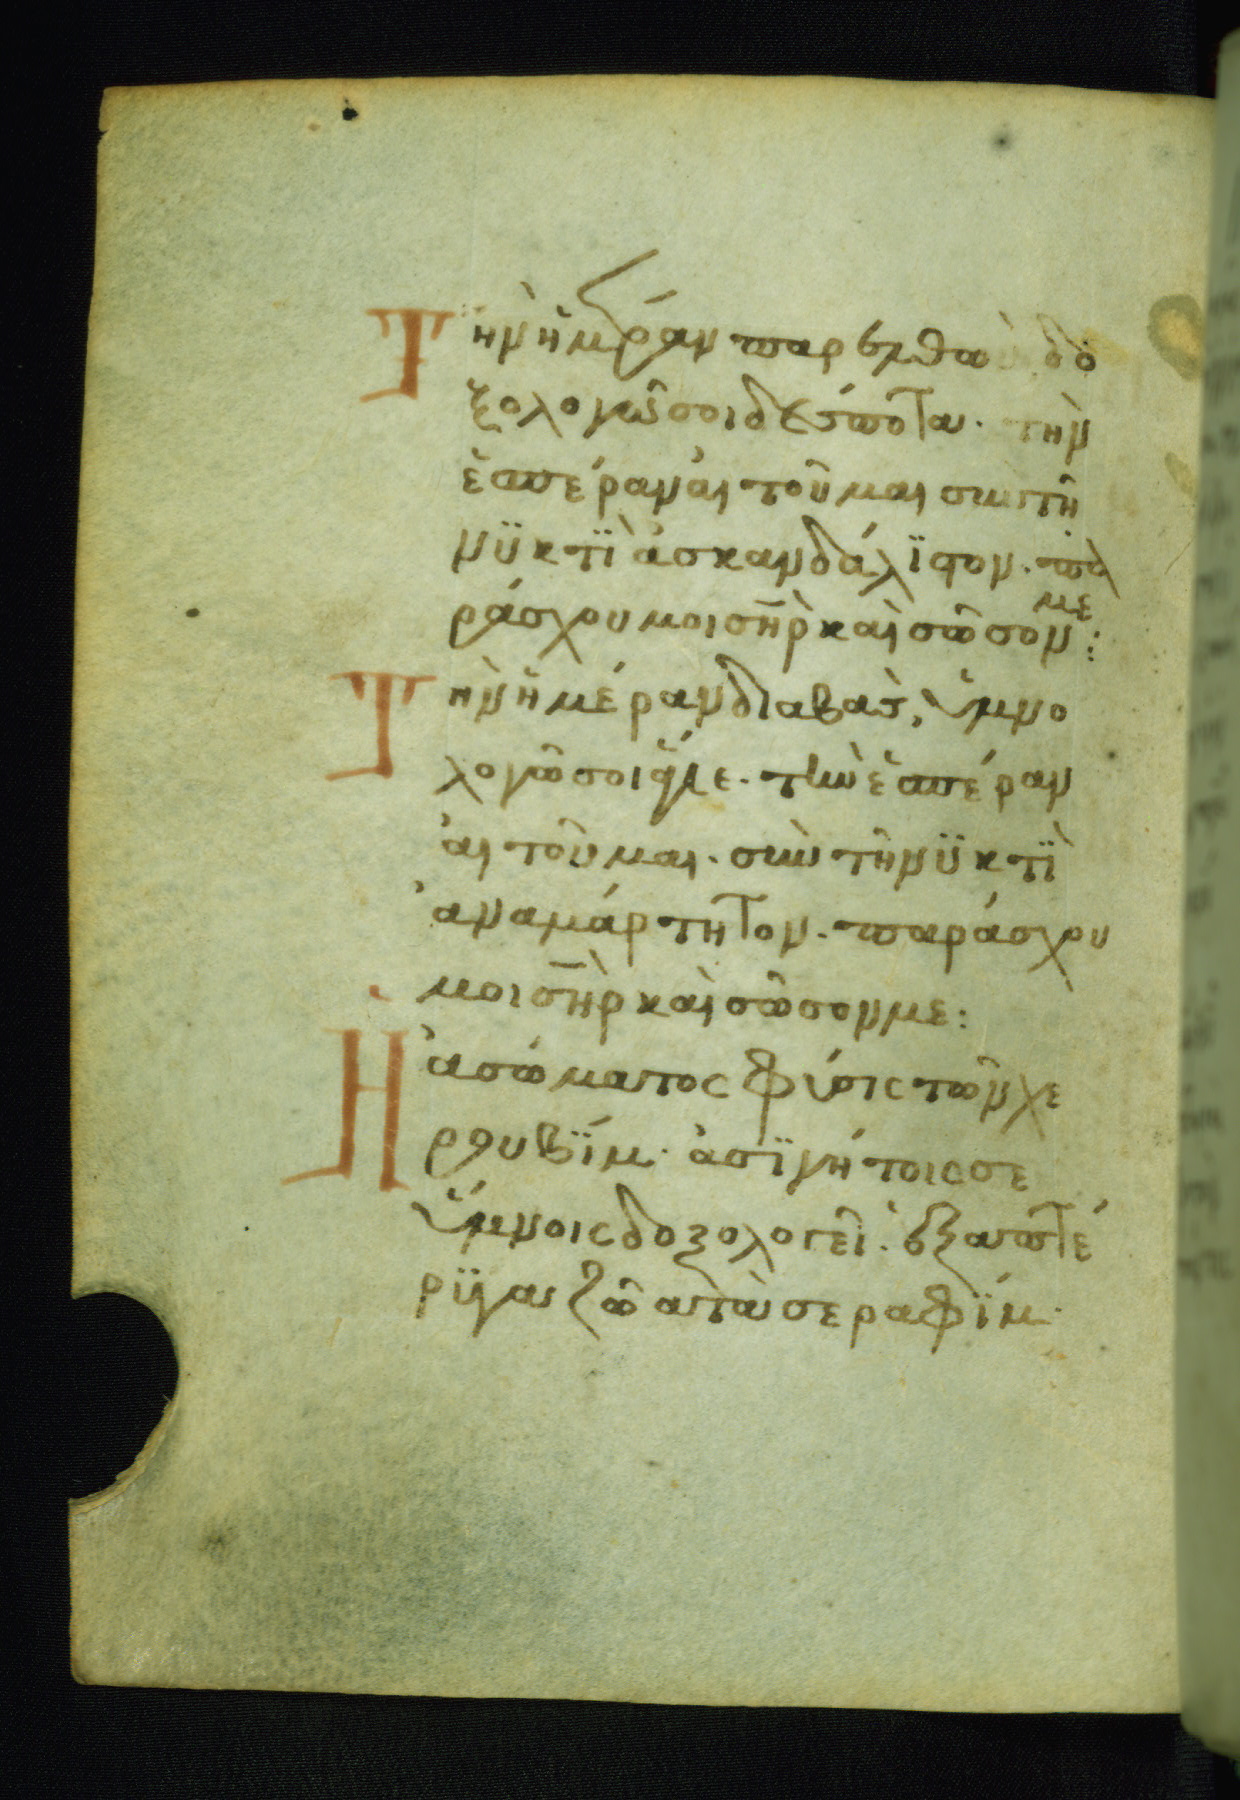 Τὴν ἡμέραν παρελθὼν δο
ξολογῶ σοι δέσποτα· τὴν
ἑσπέραν αἰτοῦμαι σὺν τῆ
νϋκτῒ ἀσκανδάλϊστον· πα
ράσχου μοι σ̅ηρ καὶ σῶσον με:
Τὴν ἡμέραν διαβὰς, ὑμνο
λογῶ σοι ἅγιε· τὴν ἑσπέραν
αἰτοῦμαι· σὺν τῆ νϋκτῒ
ἀναμάρτητον· παράσχου
μοι σ̅ηρ καὶ σῶσον με:
Ἡ ἀσώματος φύσις τῶν χε
ρουβΐμ· ἀσϊγήτοις σε
ὕμνοις δοξολογεῖ· ἑξαπτέ
ρϋγα ζῶα τὰ σεραφΐμ·